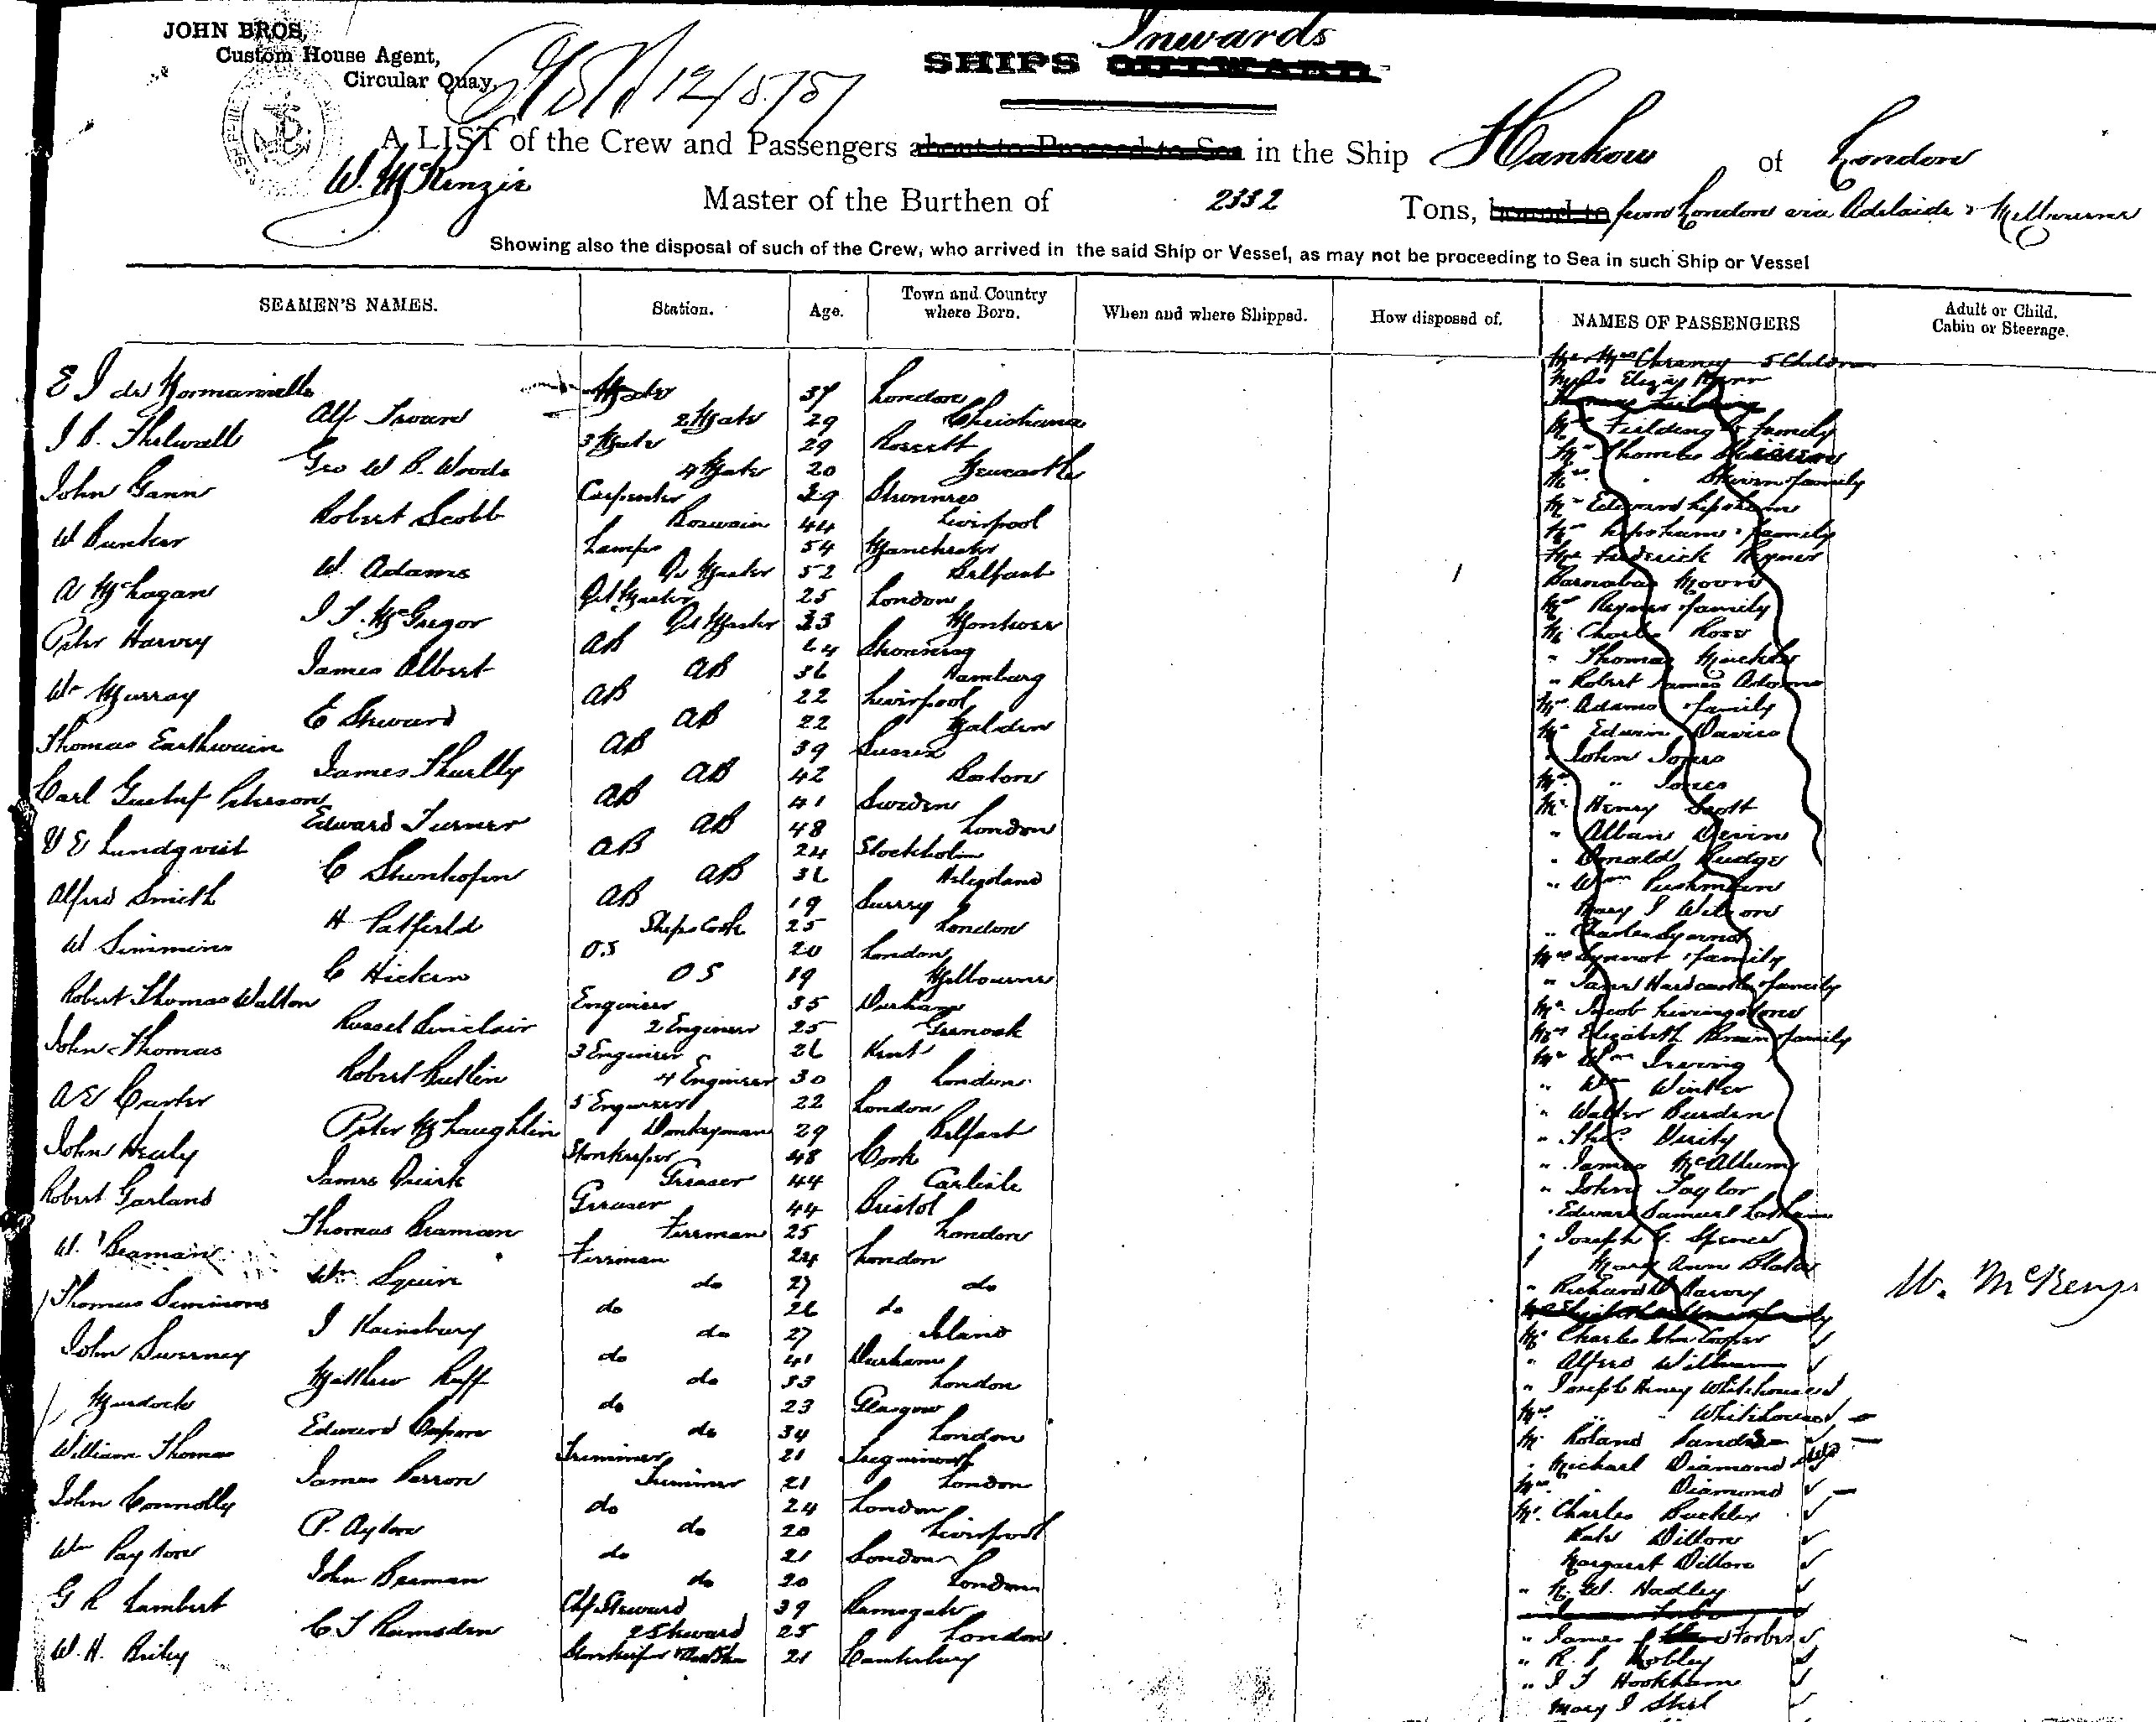 JOHN BROS,
Custom House Agent,
Circular Quay,
Inwards
SHIPS OUTWARD
A LIST of the Crew and Passengers about to Proceed to Sea in the Ship Hankow of London
W. McKenzie Master of the Burthen of 2332 Tons, bound to from London via Adelaide & Melbourne
Showing also the disposal of such of the Crew, who arrived in the said Ship or Vessel, as may not be proceeding to Sea in such Ship or Vessel
SEAMEN'S NAMES. Station. Age. Town and Country where Born. When and where Shipped. How disposed of. NAMES OF PASSENGERS Adult or Child, Cabin or Steerage.
E J de Mate 37 London
Alf 2 Mate 29 Christiana
J B. Thelwall 3 Mate 29
Geo W B. Woods 4 Mate 20 Newcastle
John Gann Carpenter 29
Robert Scobb Boswain 44 Liverpool
W Bunker Lamps 54 Manchester
W. Adams Qr Master 52 Belfast
A McLagan Qrt Master 25 London
J F. McGregor Qrt Master 33 Montrose
Peter Harvey AB 24
James Albert AB 36 Hamburg
Wm Murray AB 22 Liverpool
E Steward AB 22 Maldon
Thomas Earthwain AB 39 Sussex
James Thurlly AB 42 Boston
Carl Gustaf Peterson AB 41 Sweden
Edward Turner AB 48 London
E Lundqvist AB 24 Stockholm
C Stenhofen AB 36 Heligoland
Alfred Smith AB 19 Surrey
H Patfield Ships Cook 25 London
W Simmins OS 20 London
C Hicken OS 19 Melbourne
Robert Thomas Walton Engineer 35 Durham
Russel Sinclair 2 Engineer 25 Greenock
John Thomas 3 Engineer 26 Kent
Robert Butlin 4 Engineer 30 London
A E Carter 5 Engineer 22 London
Peter McLaughlin Donkeyman 29 Belfast
John Healy Storekeeper 48 Cork
James Quirk Greaser 44 Carlisle
Robert Garland Greaser 44 Bristol
Thomas Beaman Fireman 25 London
W. Beaman Fireman 24 London
Wm Squire do 27 do
Thomas Simmons do 26 do
J Hainsbury do 27
John Sweeney do 41 Durham
Matthew Ruff do 33 London
Murdock do 23 Glasgow
Edward do 34 London
William Thomas Trimmer 21
James Perron Trimmer 21 London
John Connolly do 24 London
P. Ayton do 20 Liverpool
Wm Payton do 21 London
John Beaman do 20 London
G R Lambert Chf Steward 39 Ramsgate
C J Ramsden 2 Steward 25 London
W. H. Briley Storekeeper 21 Canterbury
5 Children
Fielding & family
Mr Thomas
& family
Mr Edward
& family
Mr Frederick Reymer
Barnabas Moore
Mrs Reymer & family
Mr Charles Rose
" Thomas
" Robert James Adams
Mrs Adams & family
Mr Edwin Davies
" John Jones
Mrs " Jones
Mr Henry Scott
" Alban Devine
" Donald Rudge
" Wm
Mary J Wilson
" Charles Synnot
Mrs Synnot & family
" Janet Hardcastle & family
Mr Jacob Livingstone
Mrs Elizabeth Brown & family
Mr Wm Irving
" Wm Winter
" Walter Burden
" Thos. Verity
" James McAllum
" John Taylor
" Edward Samuel Latham
" Joseph G. Spencer
Mary Ann Blake
" Richard
Mr Charles John Cooper
" Alfred William
" Joseph Henry Whitehouse
Mrs " " Whitehouse
Mr Roland Sands
" Michael Diamond
Mrs " Diamond
Mr. Charles Buckley
Kate Dillon
Margaret Dillon
" H. W. Hadley
" James Forbes
" R. S Mobley
" J J Hookham
Mary J Skel
W. McKenz